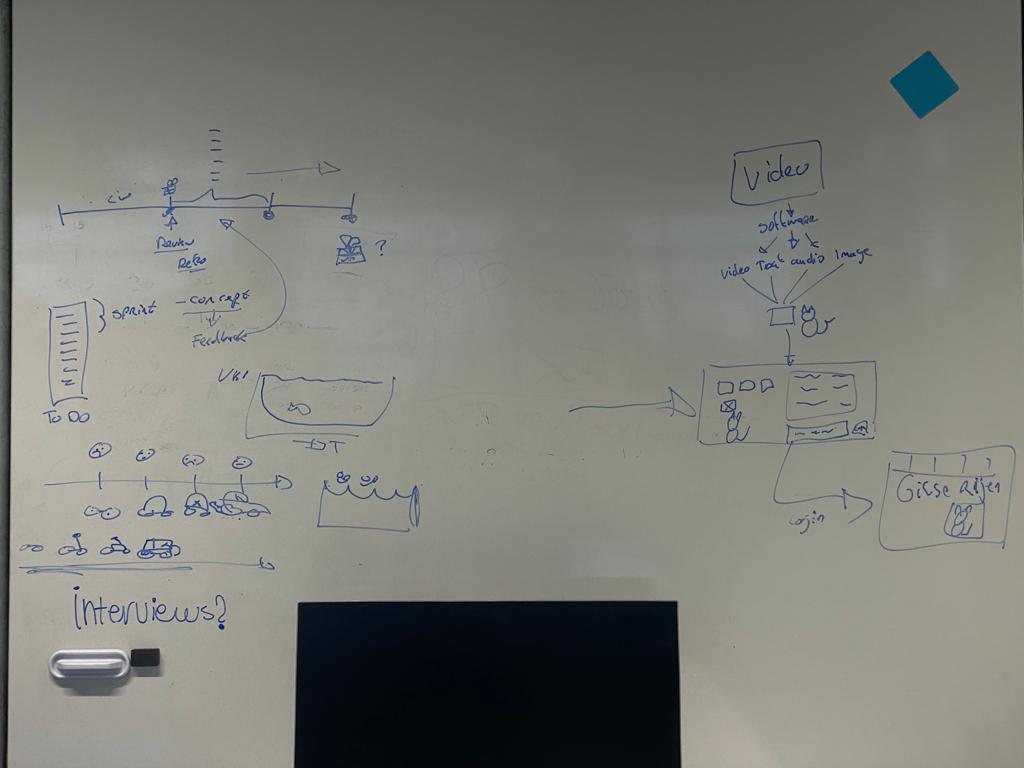 Review
Retro
?
Sprint
- concept
Feedback
To Do
Interviews?
Video
software
video Text audio image
Login